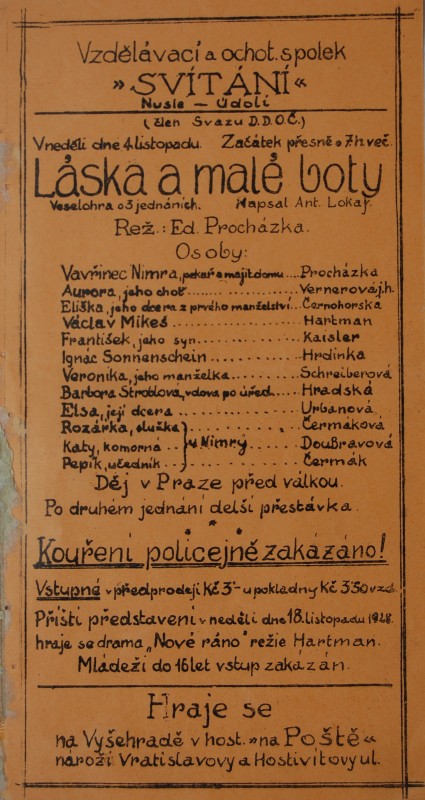 Vzdělávací a ochot. spolek
»SVÍTÁNÍ«
Nusle – Údolí
(člen Svazu D.D.O.Č.)
V neděli dne 4. listopadu. Začátek přesně o 7 h več.
Láska a malé boty
Veselohra o 3 jednáních. Napsal Ant. Lokay.
Rež.: Ed. Procházka.
Osoby:
Vavřinec Nimra, pekař a majit. domu .... Procházka
Aurora, jeho choť .................. Vernerová j.h.
Eliška, jeho dcera z prvého manželství ... Černohorská
Václav Mikeš .................... Hartman
František, jeho syn ............... Kaisler
Ignác Sonnenschein ............. Hrdinka
Veronika, jeho manželka .......... Schreiberová
Barbora Stroblová, vdova po úřed. ... Hradská
Elsa, její dcera .................. Urbanová
Rozárka, služka } ............. Čermáková
Katy, komorná .. } u Nimrů ....... Doubravová
Pepík, učedník .. } ............. Čermák
Děj v Praze před válkou.
Po druhém jednání delší přestávka.
Kouření policejně zakázáno!
Vstupné v předprodeji Kč 3·– u pokladny Kč 3·50 vzad.
Příští představení v neděli dne 18. listopadu 1928.
hraje se drama „Nové ráno“ režie Hartman.
Mládeži do 16 let vstup zakázán.
Hraje se
na Vyšehradě v host. »na Poště«
nároží Vratislavovy a Hostivítovy ul.